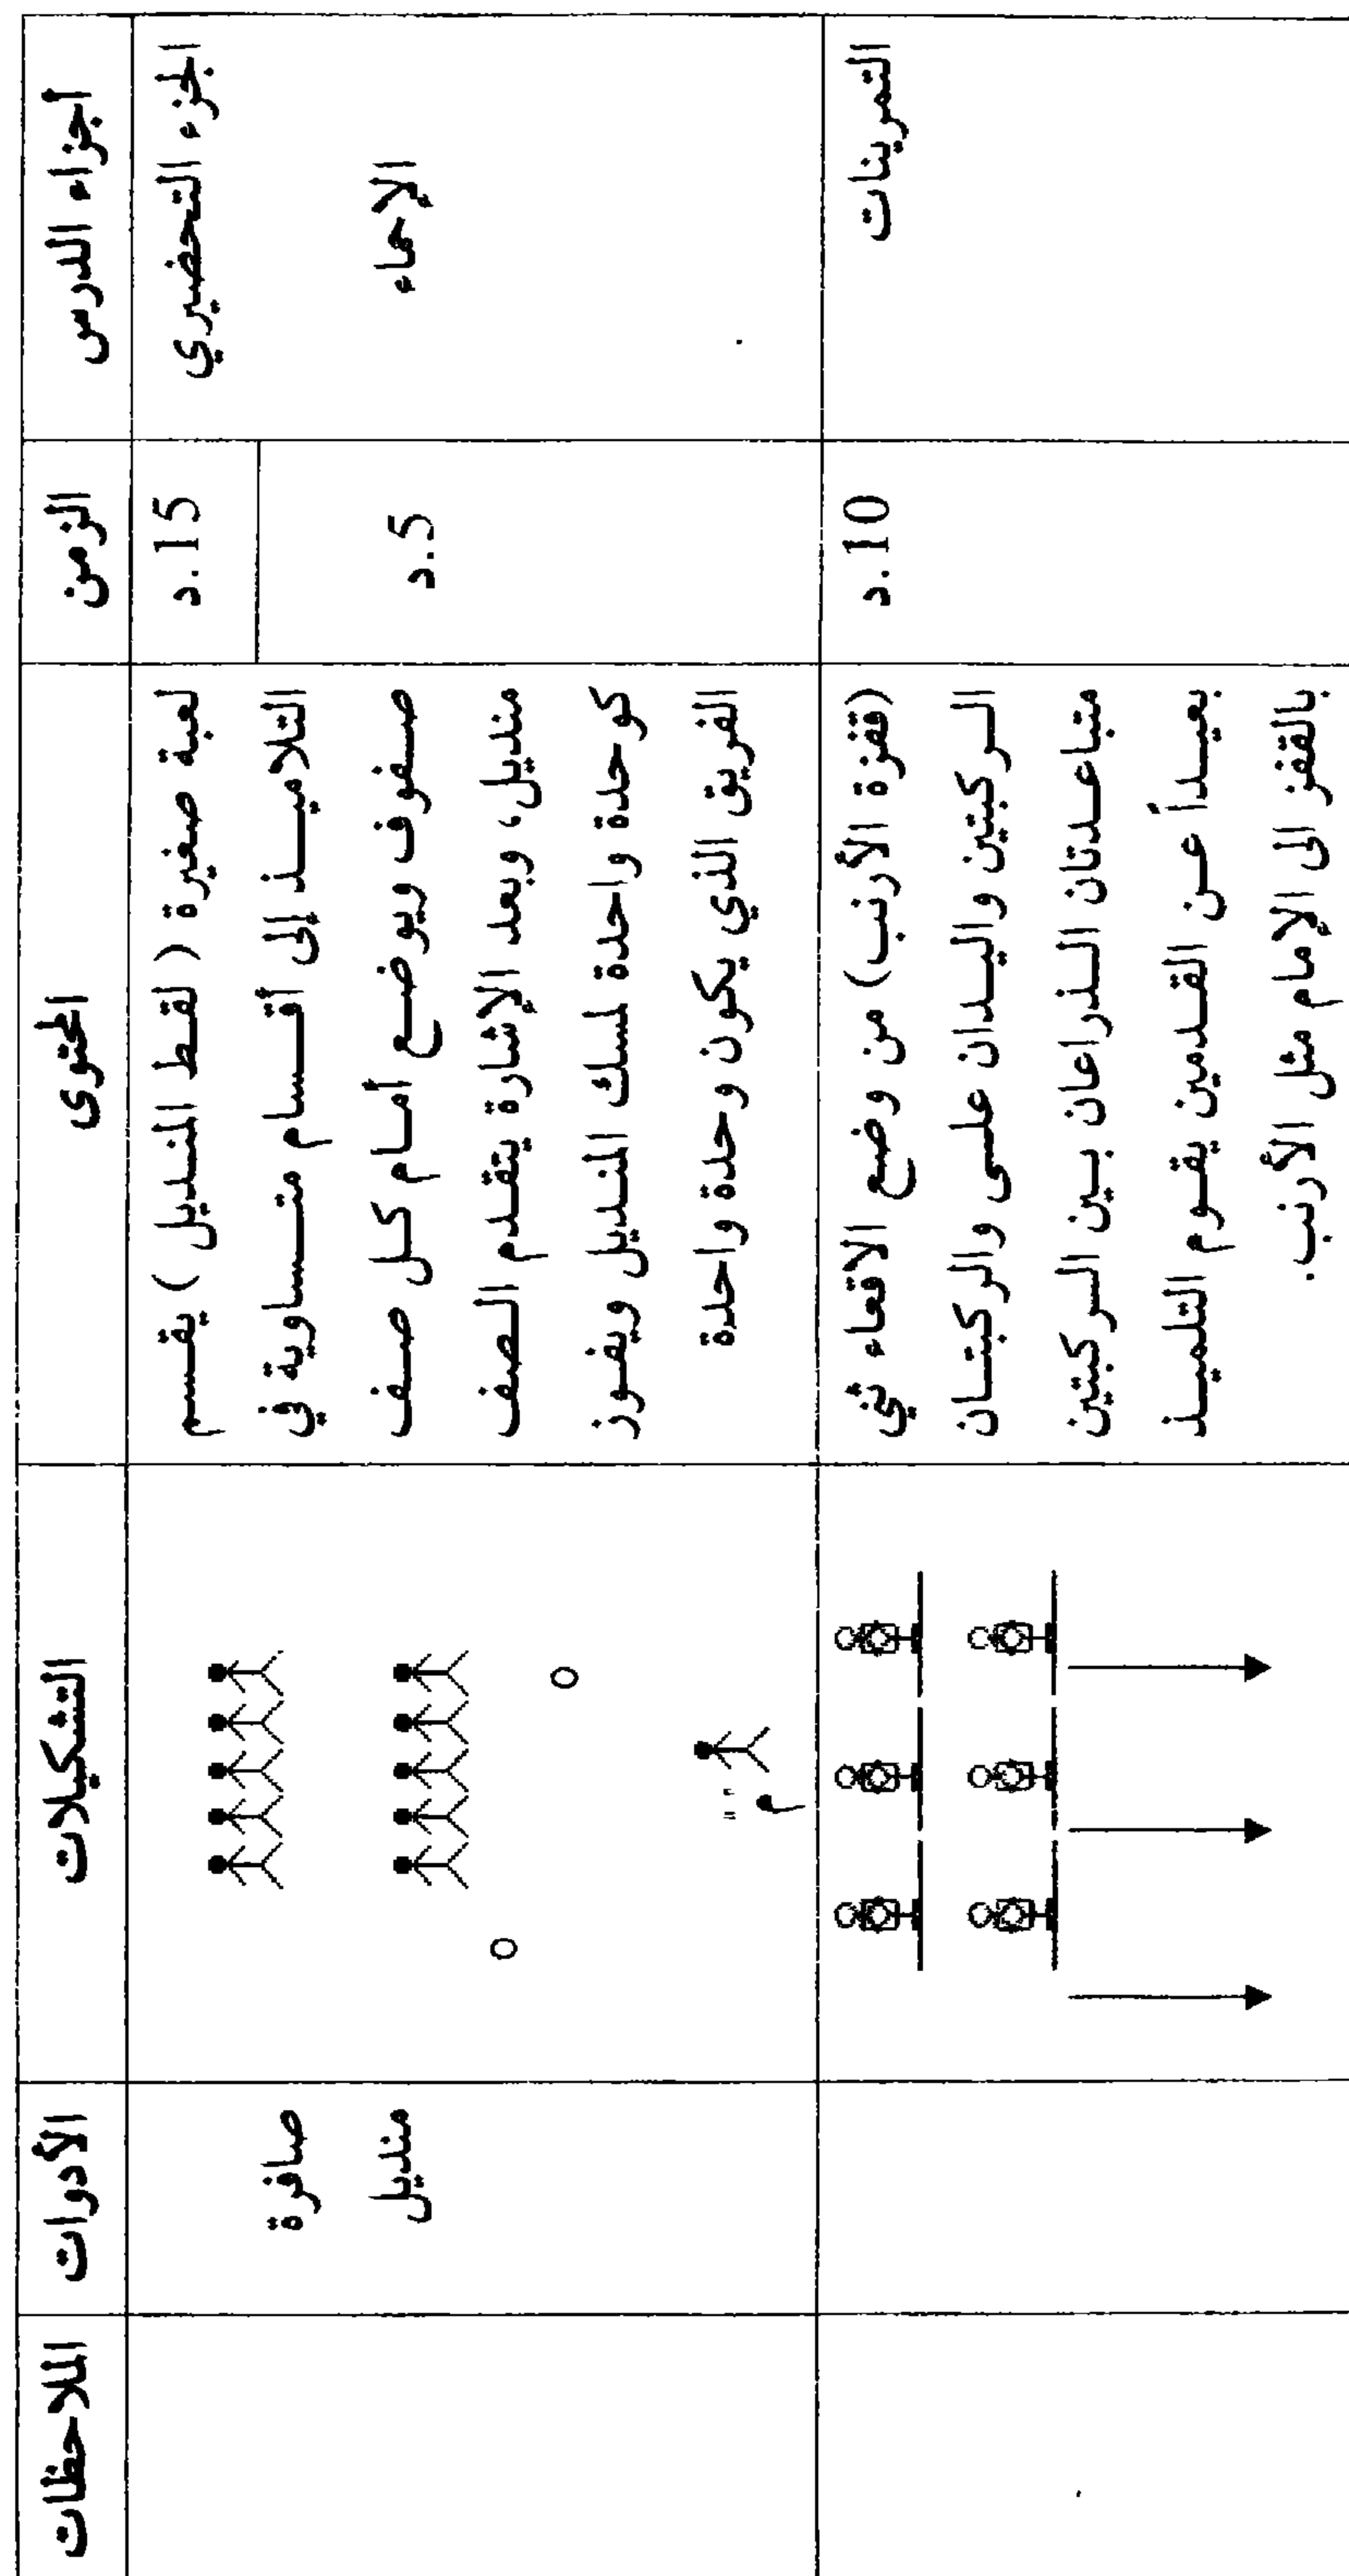 أجزاء الدرس الزمن المحتوى التشكيلات الأدوات الملاحظات
الجزء التحضيري
الإحماء
15.د
5.د
لعبة صغيرة ( لقط المنديل ) يقسم
التلاميذ إلى أقسام متساوية في
صفوف ويوضع أمام كل صف
منديل، وبعد الإشارة يتقدم الصف
كوحدة واحدة لمسك المنديل ويفوز
الفريق الذي يكون وحدة واحدة
"م"
صافرة
منديل
التمرينات
10.د
(قفزة الأرنب) من وضع الاقعاء ثني
الركبتين واليدان على والركبتان
متباعدتان الذراعان بين الركبتين
بعيداً عن القدمين يقوم التلميذ
بالقفز الى الإمام مثل الأرنب.